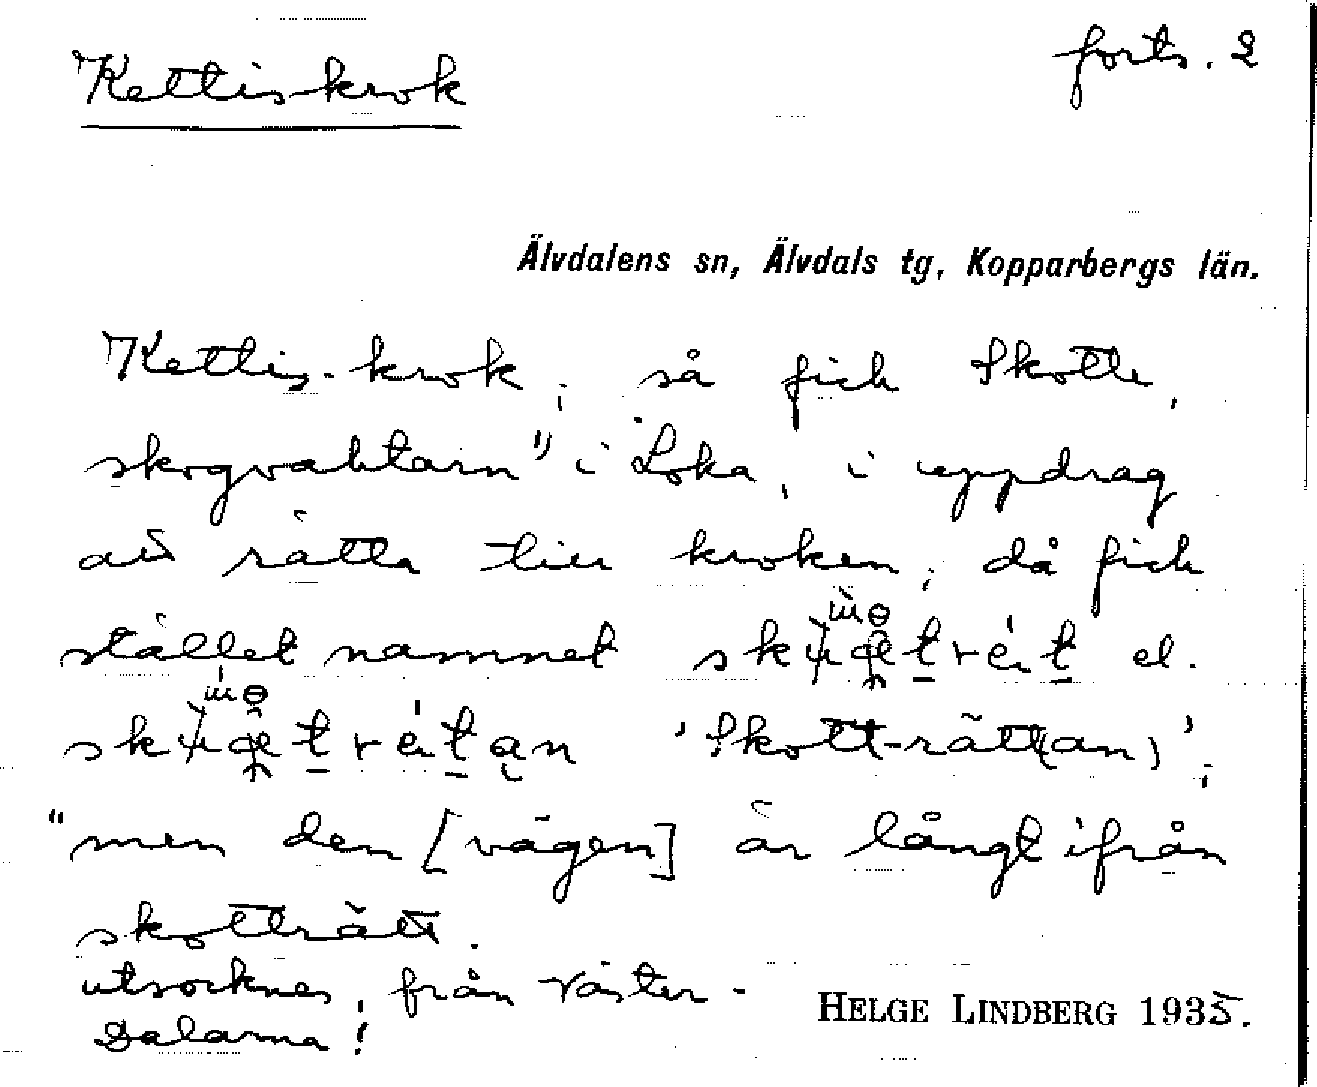 Kettiskrok
forts. 2
Älvdalens sn, Älvdals tg, Kopparbergs län.
Kettis-krok; så fick Skotte,
skogvaktarn" i Loka, i uppdrag
att rätta till kroken; då fick
stället namnet el.
'Skott-rätt(an)';
"men den [vägen] är långt ifrån
skotträtt.
utsocknes, från Väster-
Dalarna!
HELGE LINDBERG 1935.